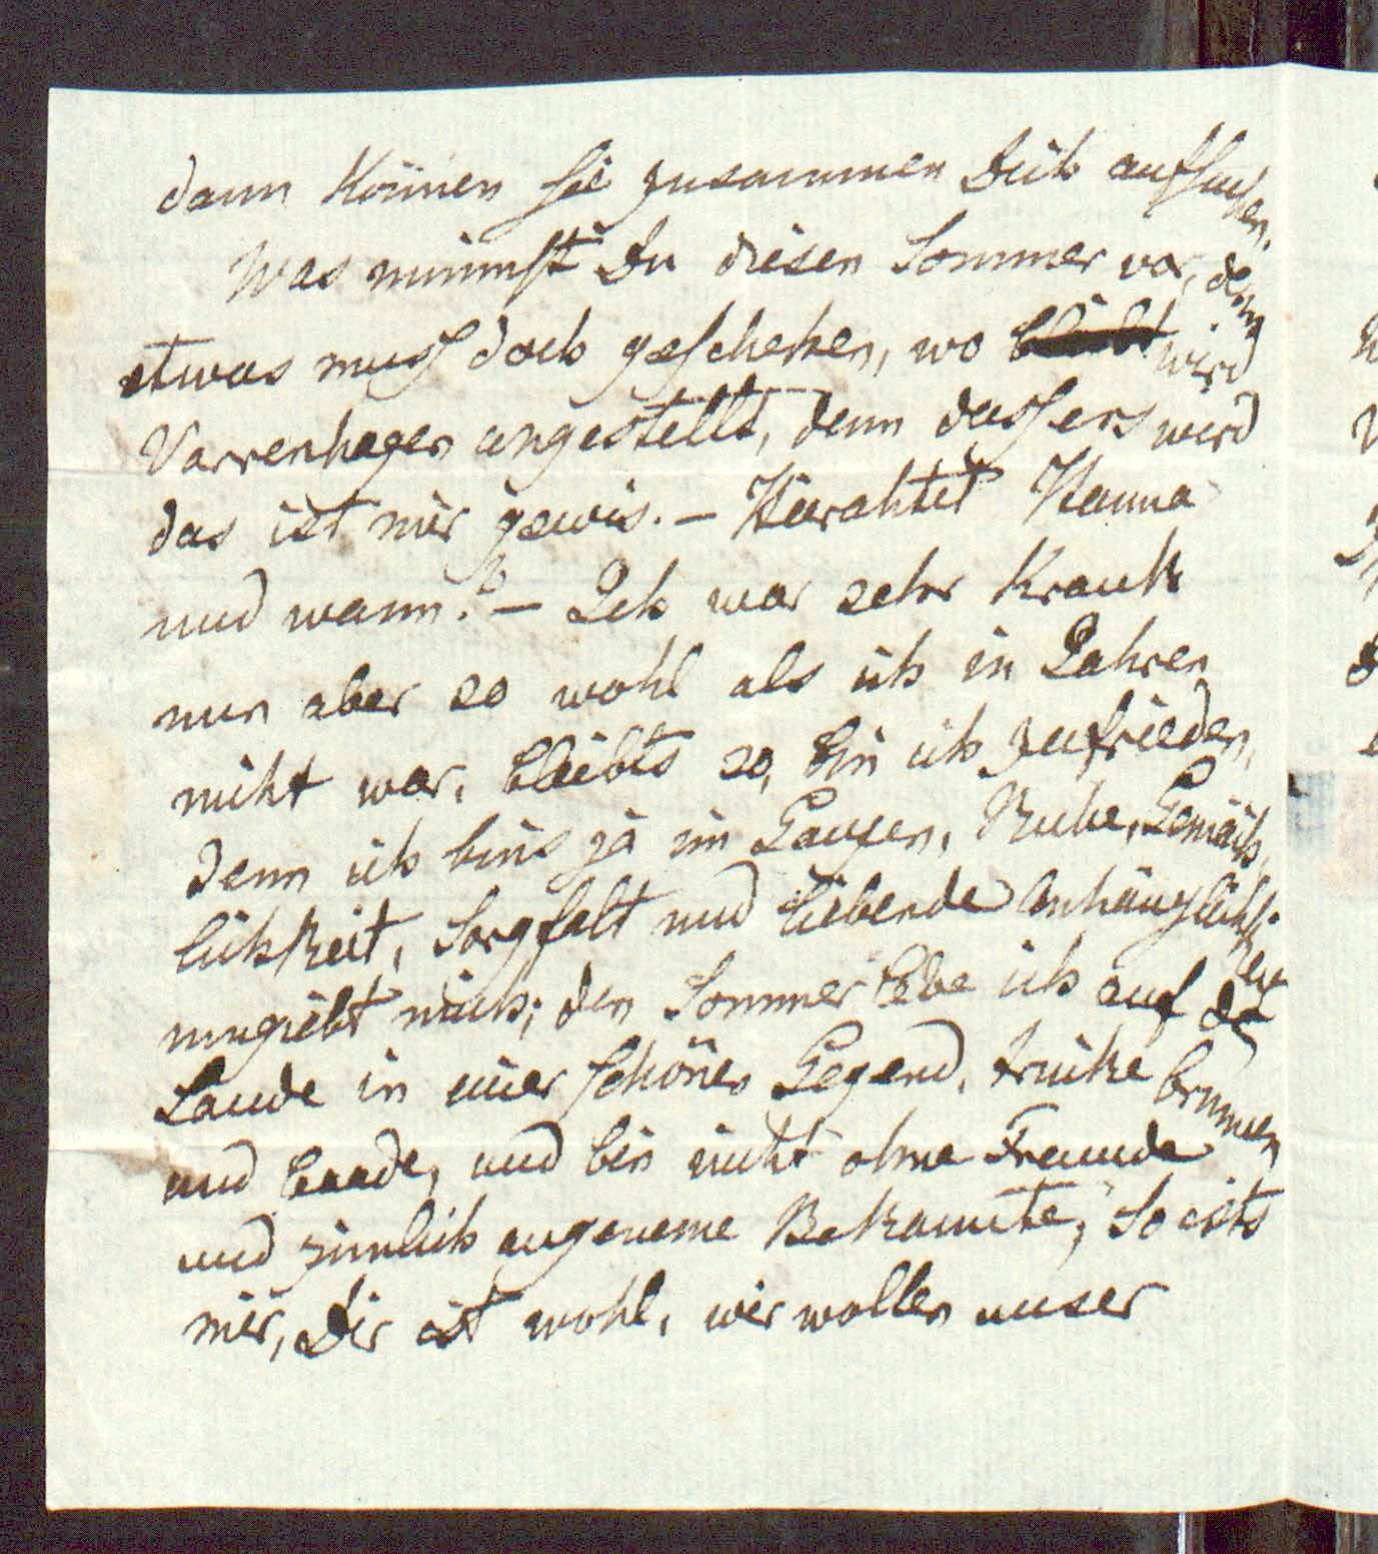 dann können sie zusammen Dich aufsuchen.
Was nimmst Du diesen Sommer vor, denn
etwas muß doch geschehen, wo wird
Varrenhagen angestellt, denn dass ers wird
das ist mir gewis. – Harahtet Hanna
und wann? – Ich war sehr krank
nun aber so wohl als ich in Jahren
nicht war, bleibts so, bin ich zufrieden,
denn ich bins ja im Ganzen, Ruhe, Gemäch,
lichkeit, Sorgfalt und liebende Anhänglichk.
umgiebt mich; den Sommer lebe ich auf dem
Lande in einer schönen Gegend, trinke brunnen
und baade, und bin nicht ohne Freunde
und zimlich angeneme Bekannte, So ists
mir, Dir ist wohl, wir wollen unser